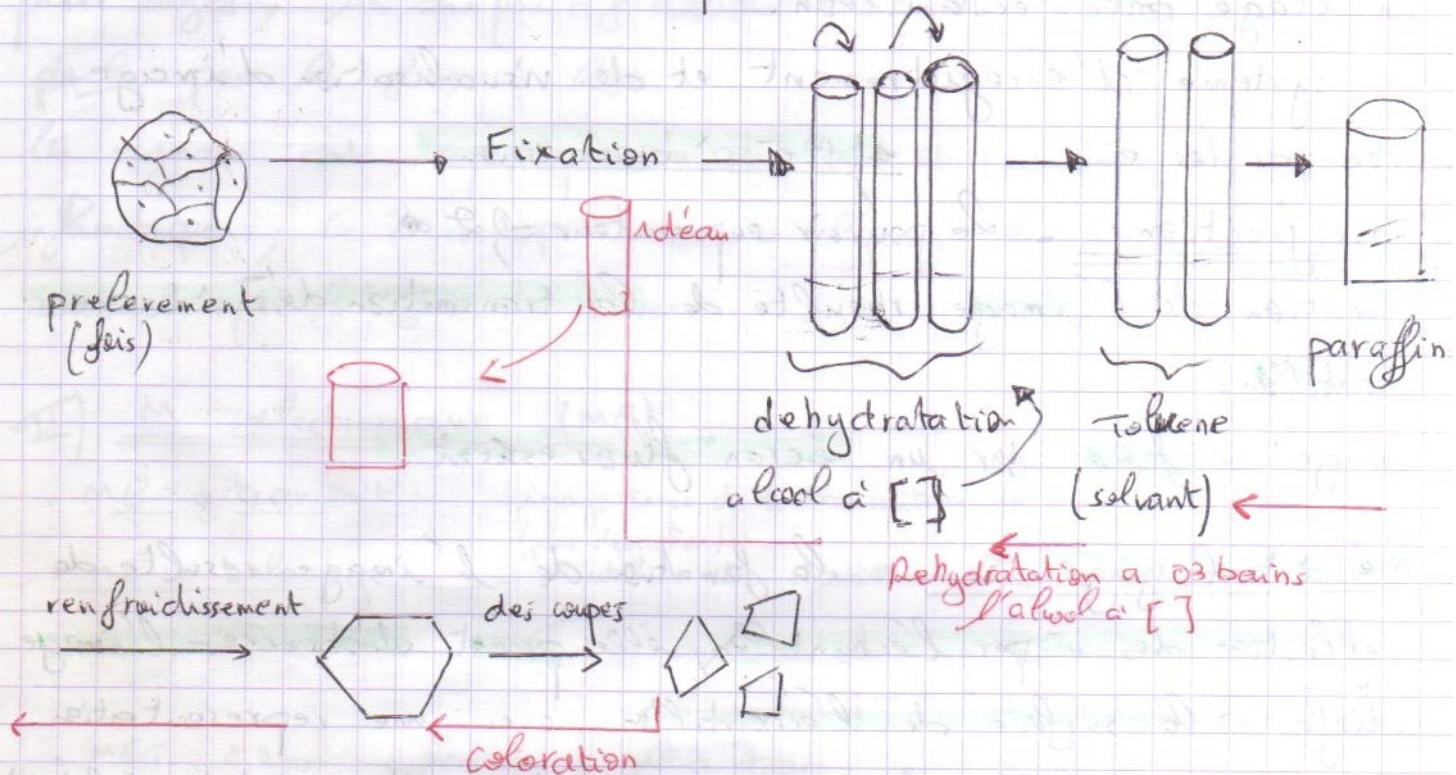 Fixation
prelevement
(fois)
1 déau
dehydratation
alcool à []
Toluene
(solvant)
paraffin
Rehydratation a 03 bains
l'alcool à []
renfroidissement
des coupes
coloration